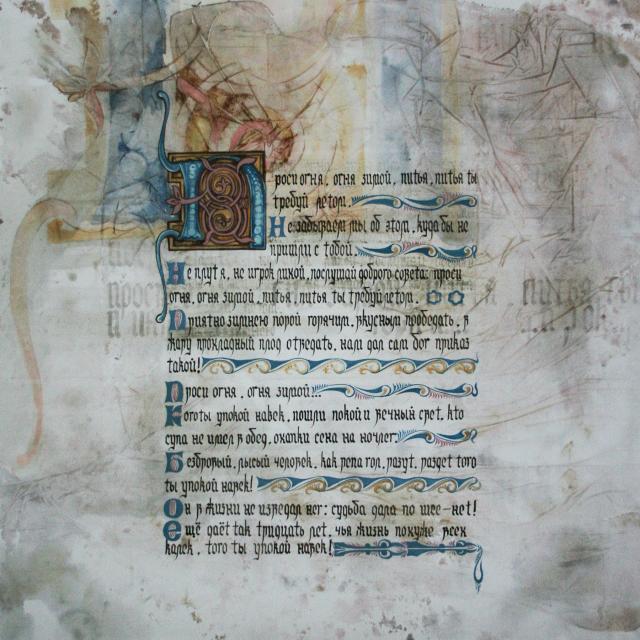 Проси огня, огня зимой, питья, питья ты
требуй летом.
Не забываем мы об этом, куда бы не
пришли с тобой.
Не плут я, не игрок лихой, послушай доброго совета: проси
огня, огня зимой, питья, питья ты требуй летом.
Приятно зимнею порой горячим, вкусным пообедать, в
жару прохладный плод отведать, нам дал сам бог приказ
такой!
Проси огня, огня зимой!..
Коготы упокой навек, пошли покой и вечный свет, кто
супа не имел в обед, охапки сена на ночлег.
Безбровый, лысый человек, как репа гол, разут, раздет того
ты упокой навек!
Он в жизни не изведал нег: судьба дала по шее-нет!
Ещё даёт так тридцать лет, чья жизнь похуже всех
калек, того ты упокой навек!